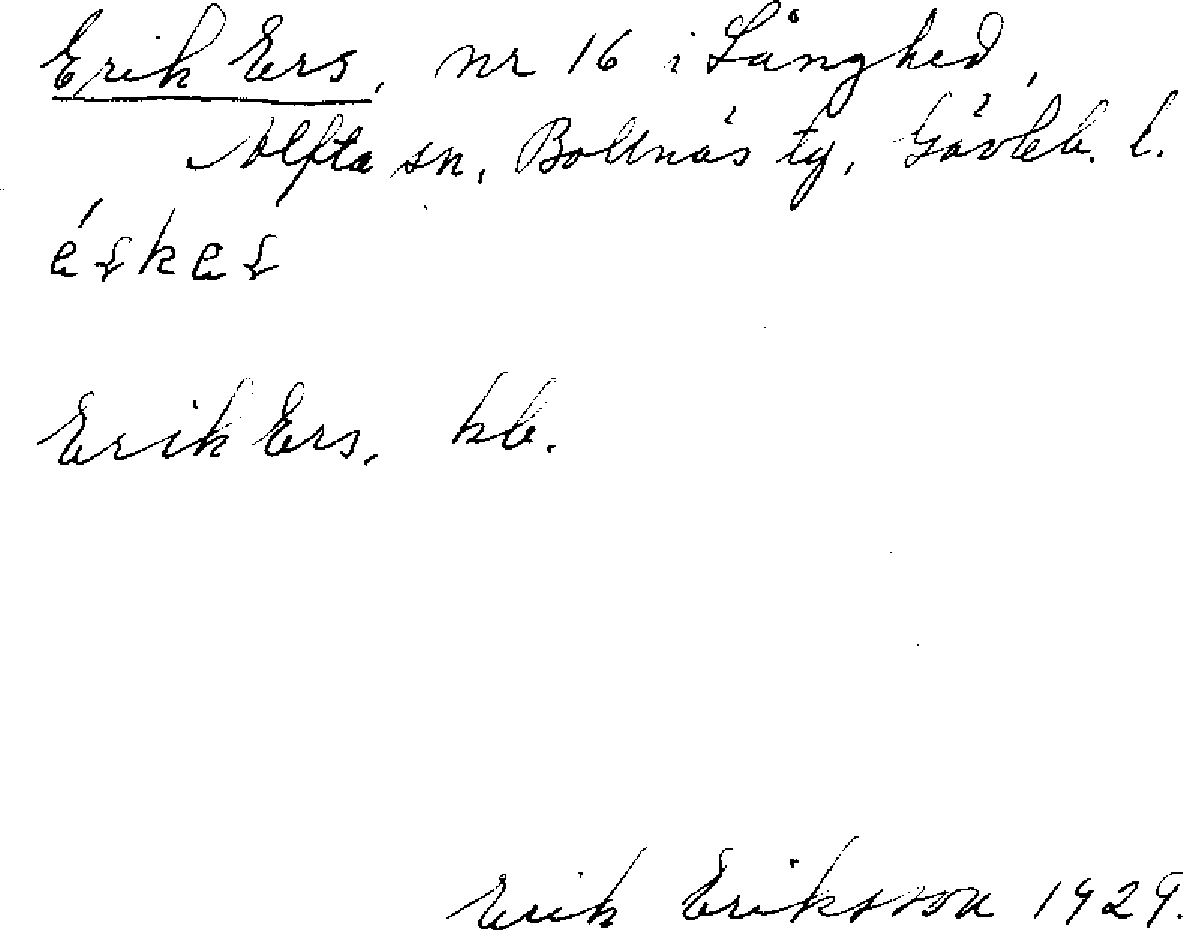 Erik Ers, nr 16 i Långhed,
Alfta sn, Bollnäs tg, Gävleb. l.
éskes
Erik Ers, kb.
Erik Eriksson 1929.